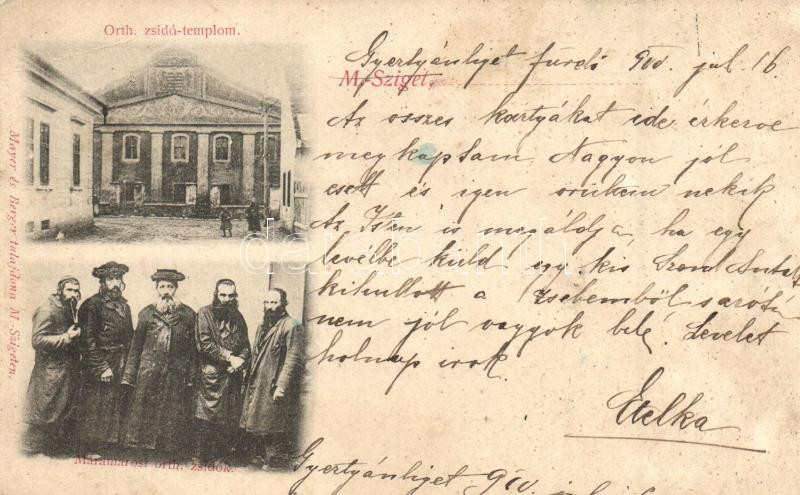 Orth. zsidó-templom.
Gyertyánliget fürdő 900 jul. 16
M.-Sziget,
Az összes kártyákat ide érkezve
megkaptam. Nagyon jól
esett és igen örültem nekik
Az Isten is megáldja, ha egy
levélbe küld egy kis Szent Antalt
kihullott a zsebemből
nem jól vagyok belé. Levelet
holnap irok.
Etelka
Gyertyánliget 900
Mayer és Berger tulajdona M.-Szigeten.
Máramarosi orth. zsidók.
darabanth